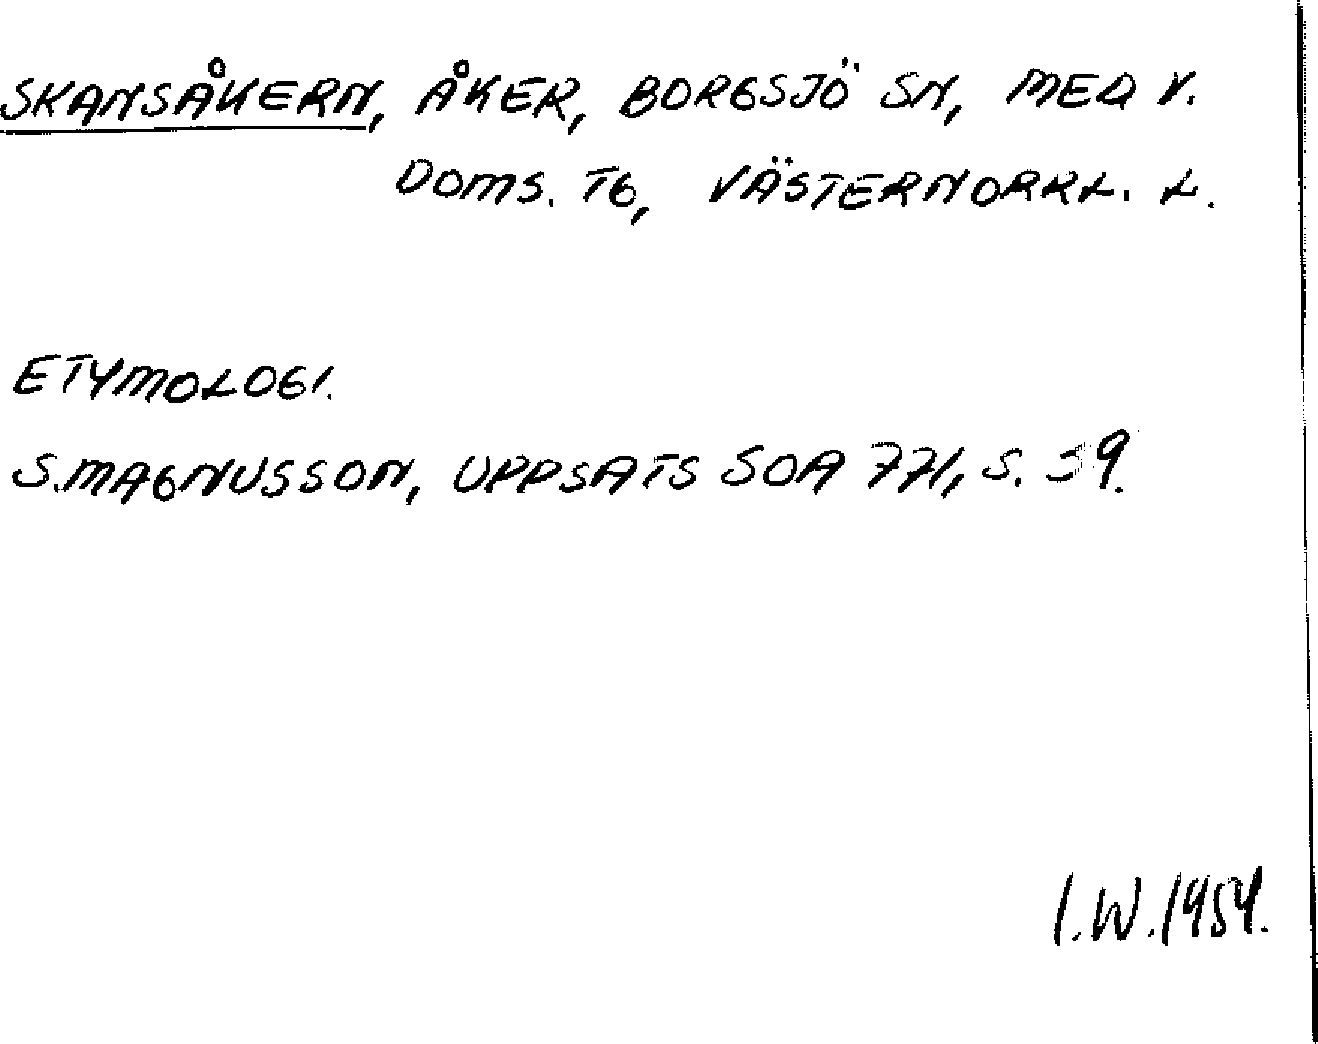 SKANSÅKERN, ÅKER, BORGSJÖ SN, MED V.
DOMS. TG, VÄSTERNORRL. L.
ETYMOLOGI.
S.MAGNUSSON, UPPSATS SOA 771, S. 39.
I.W.1954.